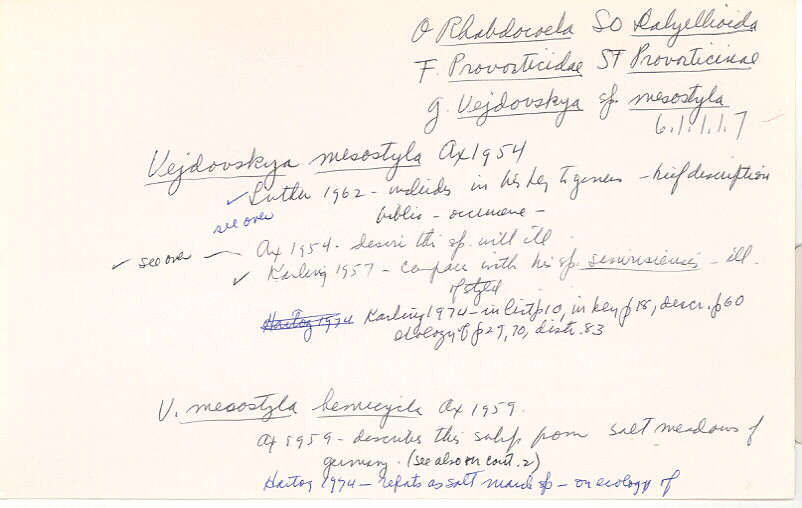 O Rhabdocoela SO Dalyellioida
F. Provorticidae SF Provorticinae
g. Vejdovskya sp. mesostyla
6.1.1.1.7
Vejdovskya mesostyla Ax 1954
✓ Luther 1962 - includes in his key to genus - brief description
see over biblio - occurrence -
✓ see over — Ax 1954 - describ this sp. with ill.
✓ Karling 1957 - compares with his sp. simrisiensis - ill.
of stylet
Hartog 1974 Karling 1974 - in list p10, in key p18, descr. p60
ecology of p29, 70, distr. 83
V. mesostyla hemicycla Ax 1959.
Ax 1959 - describes this subsp from salt meadows of
Germany. (see also on cont. 2)
Hartog 1974 - repts as salt marsh sp - on ecology of